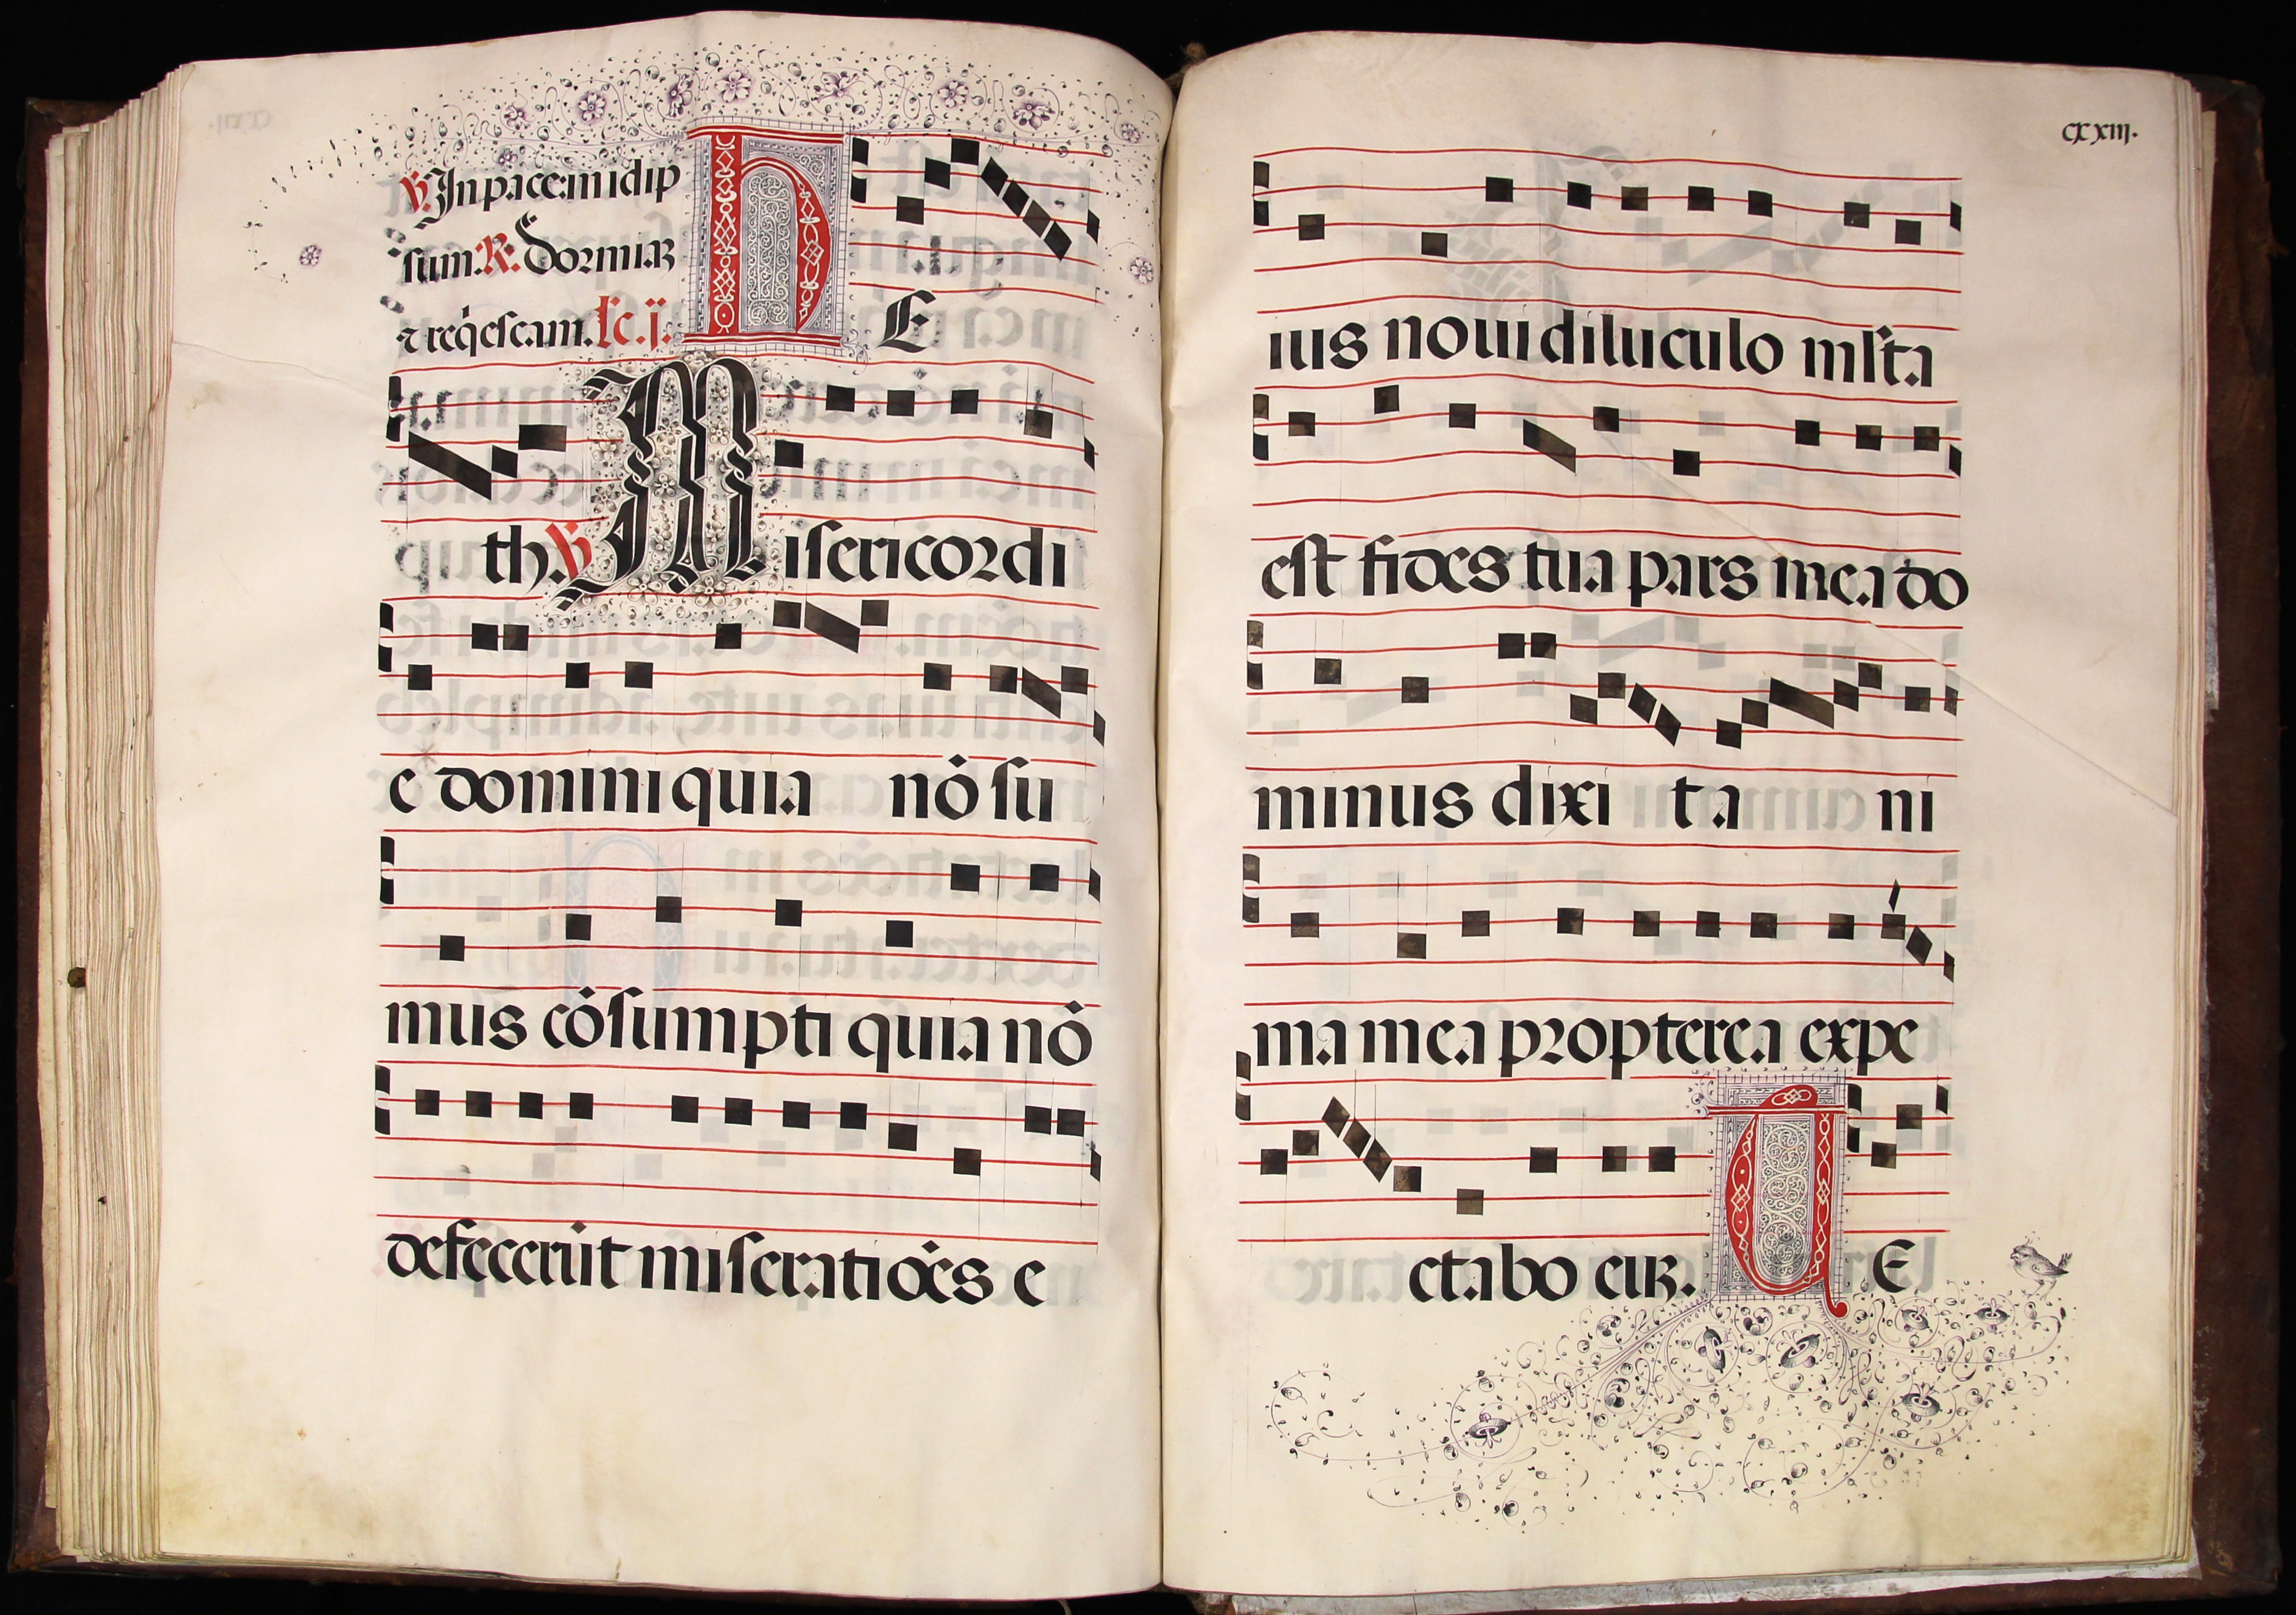 ℣. In pace in idip
sum. ℟. Dormiaꝝ
⁊ reqˈescam. Lc. ij. H E
th. ℣ Misericordi
e domini quia nō su
mus cōsumpti quia nō
defecerūt miseratiōēs e
cxxiij.
ius noui diluculo mlta
est fides tua pars mea do
minus dixi ta ni
ma mea propterea expe
ctabo euꝝ. U E